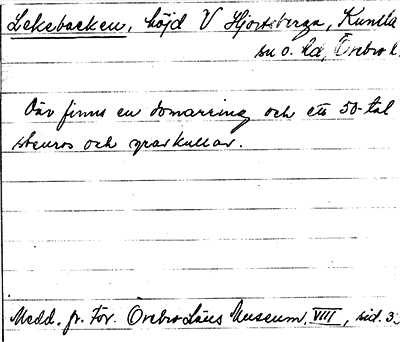 Lekebacken, höjd V Hjortsberga, Kumla
sn o. hd, Örebro l.
Där finns en domarring och ett 50-tal
stenrös och gravkullar.
Medd. fr. För. Örebro Läns Museum, VIII, sid. 3